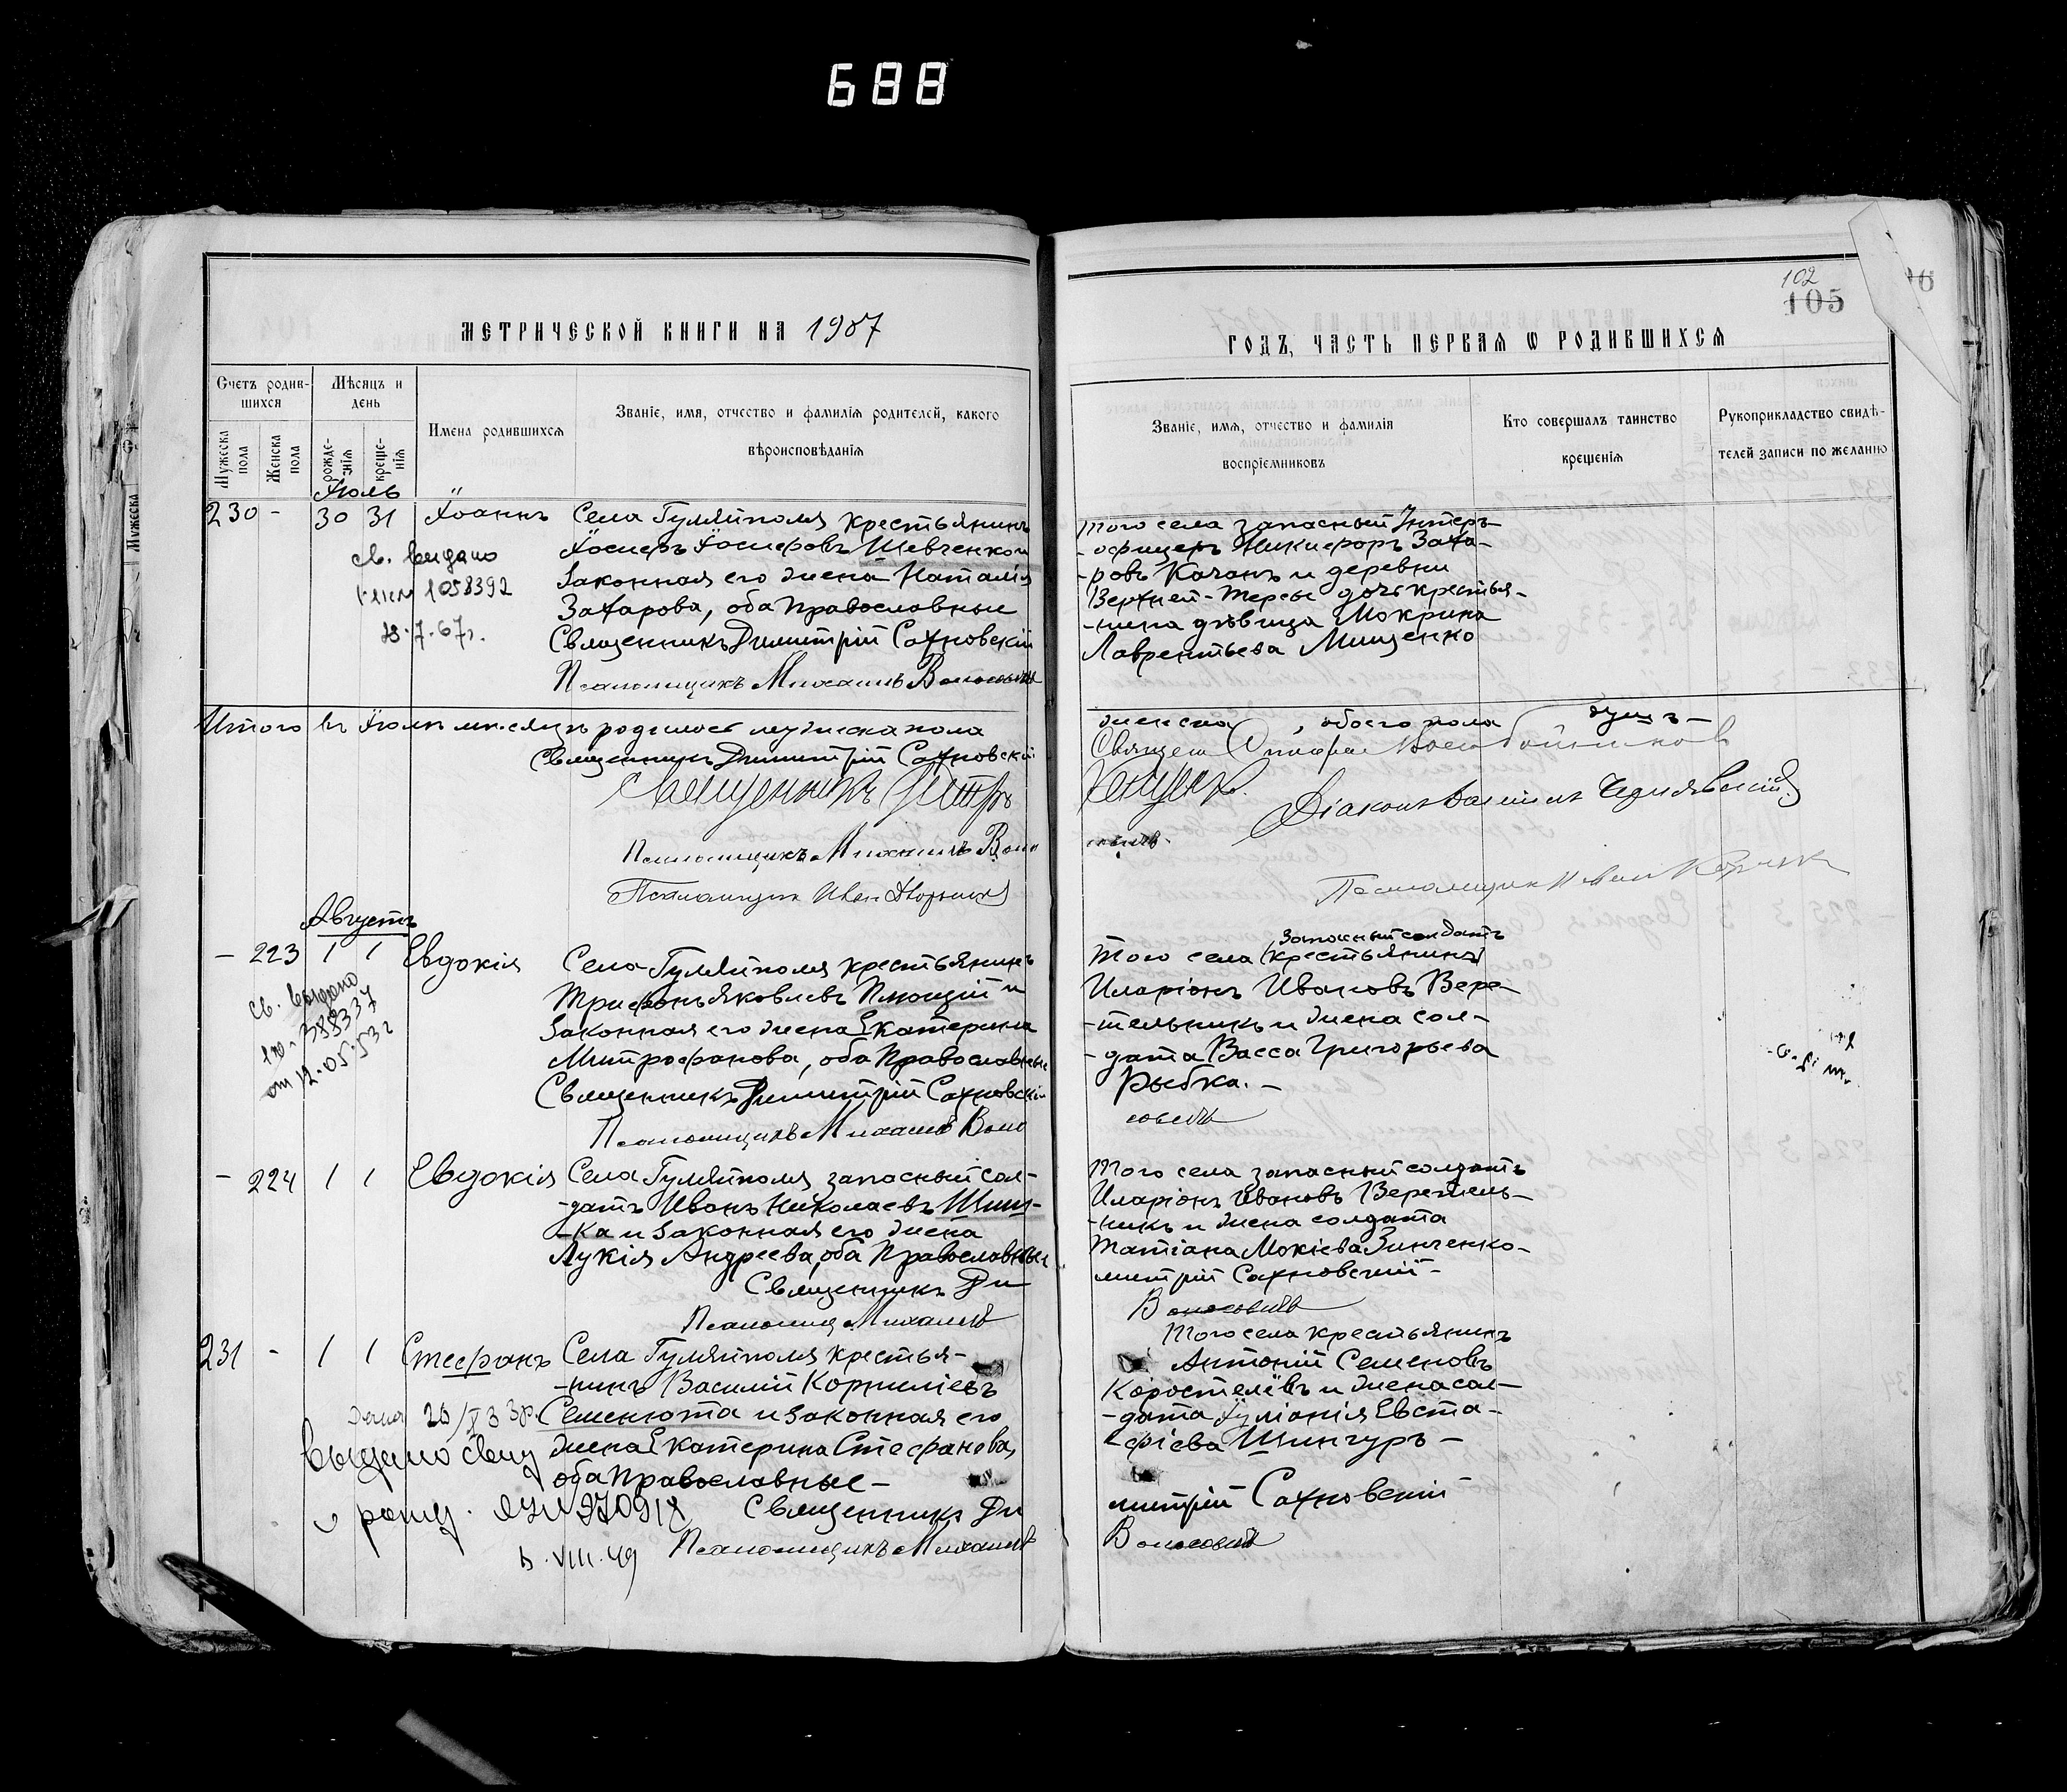 688
102
105
МЕТРИЧЕСКОЙ КНИГИ НА 1907
ГОДЪ, ЧАСТЬ ПЕРВАЯ Ѡ РОДИВШИХСЯ
Счетъ родив-
шихся
Мѣсяцъ и
день
Имена родившихся
Званіе, имя, отчество и фамилія родителей, какого
вѣроисповѣданія
Мужеска
пола
Женска
пола
рожде-
нія
креще-
нія
Званіе, имя, отчество и фамилія
воспріемниковъ
Кто совершалъ таинство
крещенія
Рукоприкладство свидѣ-
телей записи по желанію
Мужеска
Іюль
230 - 30 31 Іоаннъ
Села Гуляйполя крестьянинъ
Іосифъ Іосифовъ Шевченко и
законная его жена Наталія
Захарова, оба православные
Священникъ Димитрій Сахновскій
Псаломщикъ Михаилъ
св. выдано
1058392
18.7.67г.
того села запасный Унтеръ-
-офицеръ Никифоръ Заха-
-ровъ Качанъ и деревни
Верхней-Терсы дочь крестья-
-нина дѣвица Мокрина
Лаврентьева Мищенко
Итого въ Іюлѣ мѣсяцѣ родилось мужеска пола
женска , обоего пола душъ -
Священникъ Димитрій Сахновскій
Священникъ Петръ
Діаконъ
Псаломщикъ Михаилъ
Псаломщикъ Иван
Псаломщикъ Иван
Августъ
- 223 1 1 Евдокія
Села Гуляйполя крестьянинъ
Трифонъ Яковлевъ Плющій и
законная его жена Екатерина
Митрофанова, оба православные
Священникъ Димитрій Сахновскій
Псаломщикъ Михаилъ
св. выдано
388337
от 12.05.53г
запасный солдатъ
Того села (крестьянинъ)
Иларіонъ Ивановъ Вере-
-тельникъ и жена сол-
-дата Васса Григорьева
Рыбка. -
- 224 1 1 Евдокія
Села Гуляйполя запасный сол-
-датъ Иванъ Николаевъ
-ка и законная его жена
Лукія Андреева, оба православные
Священникъ Ди
Псаломщ Михаилъ
Того села запасный солдатъ
Иларіонъ Ивановъ Веретель-
-никъ и жена солдата
Татіана Мокіева Зинченко -
митрій Сахновскій -
231 - 1 1 Стефанъ
Села Гуляйполя крестья-
-нинъ Василій Корниліевъ
Семенюта и законная его
жена Екатерина Стефанова,
оба православные -
Священникъ Ди
Псаломщикъ Михаилъ
выдано
VIII.49
Того села крестьянинъ
Антоній Семеновъ
Коростелёвъ и жена сол-
-дата Іуліанія Евста-
-фіева Шингуръ -
митрій Сахновскій